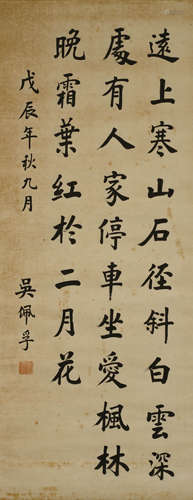 遠上寒山石徑斜白雲深
處有人家停車坐愛楓林
晚霜葉紅於二月花
戊辰年秋九月
吳佩孚